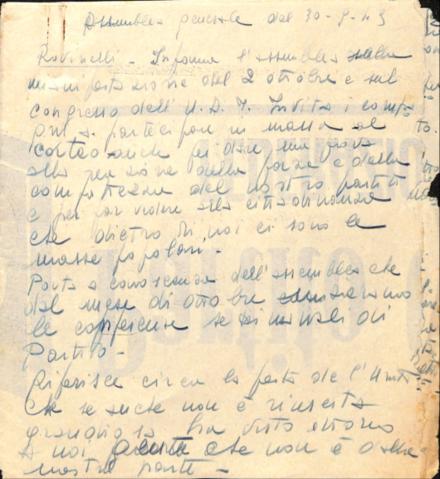 Assemblea generale del 30-9-45
Rovinelli - Informa l'assemblea sulla
manifestazione del 2 ottobre e sul
congresso dell'U.D.I. Invita i compa
gni a partecipare in massa al
corteo anche per dare una prova
alla della forza e della
compattezza del nostro partito
e per far vedere alla cittadinanza
che dietro di noi ci sono le
masse popolari.
Porta a conoscenza dell'assemblea che
dal mese di ottobre inizieranno
le conferenze settimanali di
Partito -
Riferisce circa la festa de l'Unità
che se anche non è riuscita
grandiosa ha visto attorno
a noi gente che non è della
nostra parte -